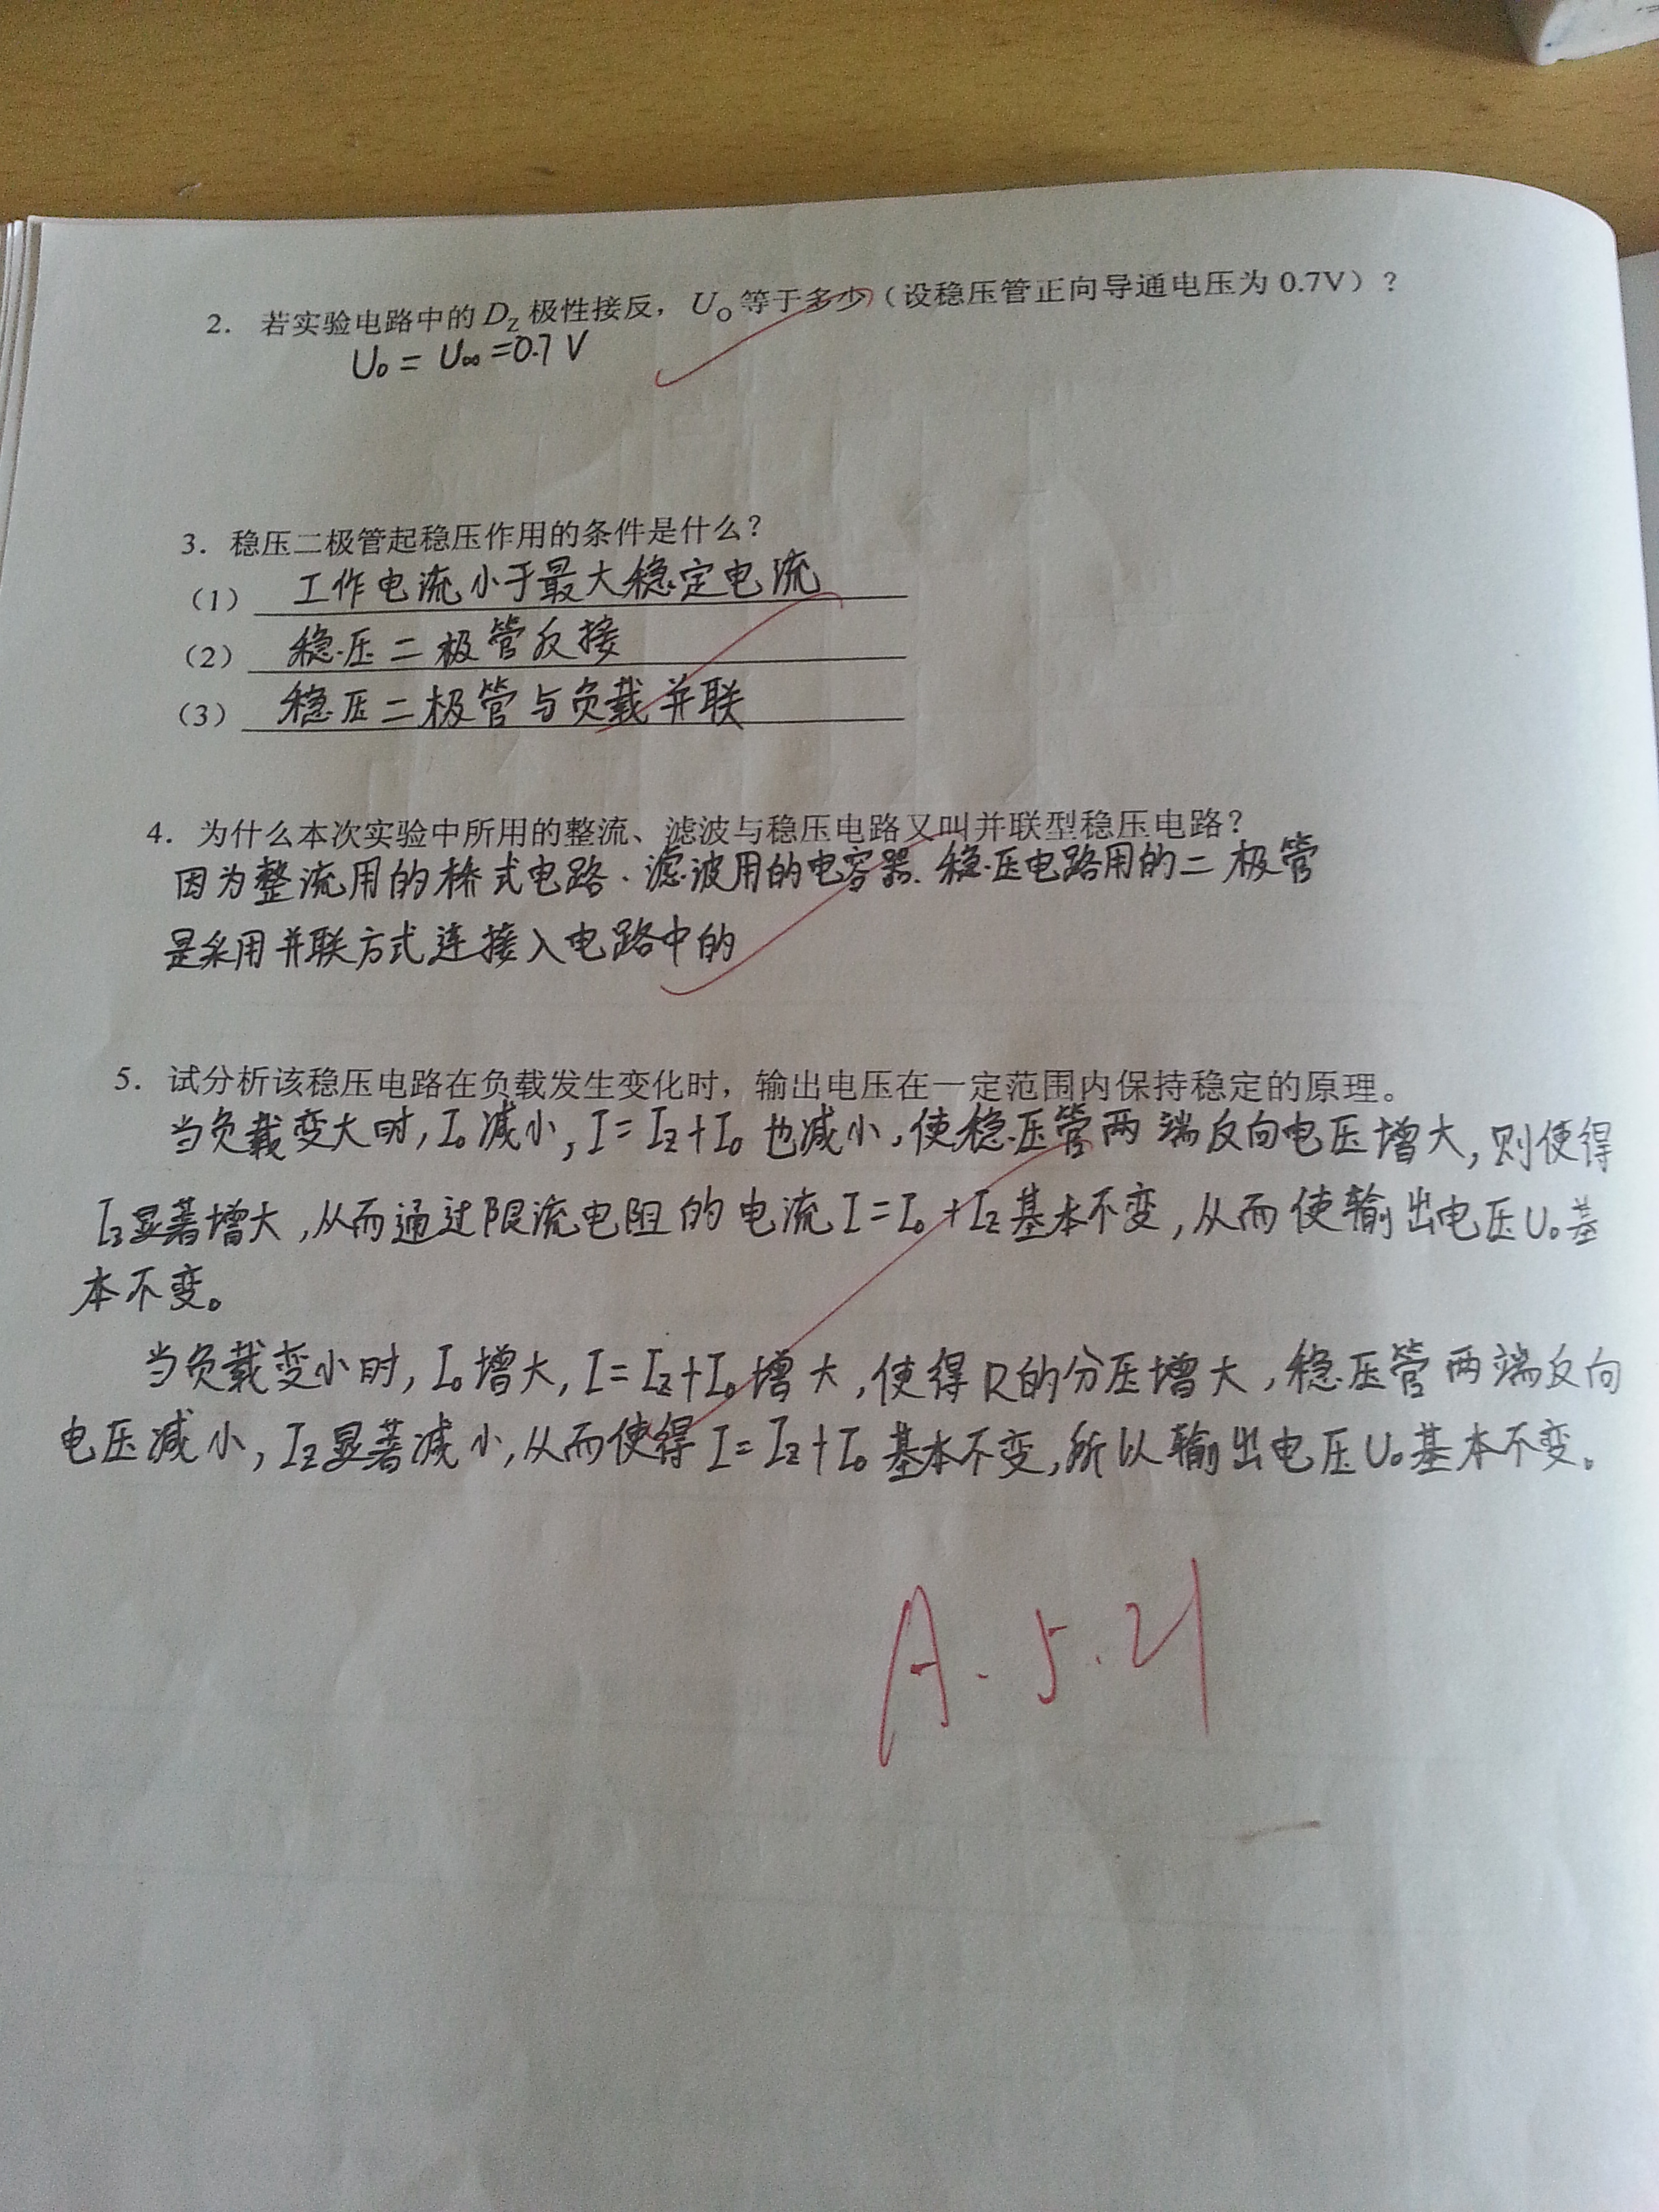 2. 若实验电路中的 Dz 极性接反，Uo 等于多少（设稳压管正向导通电压为 0.7V）？
Uo = U∞ =0.7 V
3. 稳压二极管起稳压作用的条件是什么？
（1） 工作电流小于最大稳定电流
（2） 稳压二极管反接
（3） 稳压二极管与负载并联
4. 为什么本次实验中所用的整流、滤波与稳压电路又叫并联型稳压电路？
因为整流用的桥式电路、滤波用的电容器、稳压电路用的二极管
是采用并联方式连接入电路中的
5. 试分析该稳压电路在负载发生变化时，输出电压在一定范围内保持稳定的原理。
当负载变大时，Io减小，I=Iz+Io 也减小，使稳压管两端反向电压增大，则使得
Iz显著增大，从而通过限流电阻的电流I=Io+Iz基本不变，从而使输出电压Uo基
本不变。
当负载变小时，Io增大，I=Iz+Io增大，使得R的分压增大，稳压管两端反向
电压减小，Iz显著减小，从而使得I=Iz+Io基本不变，所以输出电压Uo基本不变。
A. 5.21